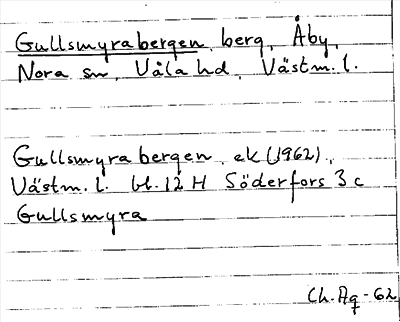 Gullsmyrabergen, berg, Åby,
Nora sn, Våla hd, Västm. l.
Gullsmyrabergen, ek (1962),
Västm. l. bl. 12 H Söderfors 3 c
Gullsmyra
Ch. Ag - 62